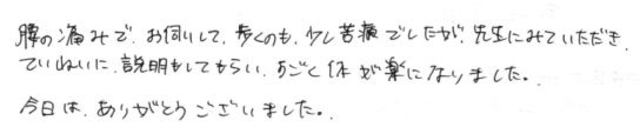 腰の痛みで、お伺いして、歩くのも、少し苦痛でしたが、先生にみていただき、
ていねいに、説明もしてもらい、すごく体が楽になりました。
今日は、ありがとうございました。